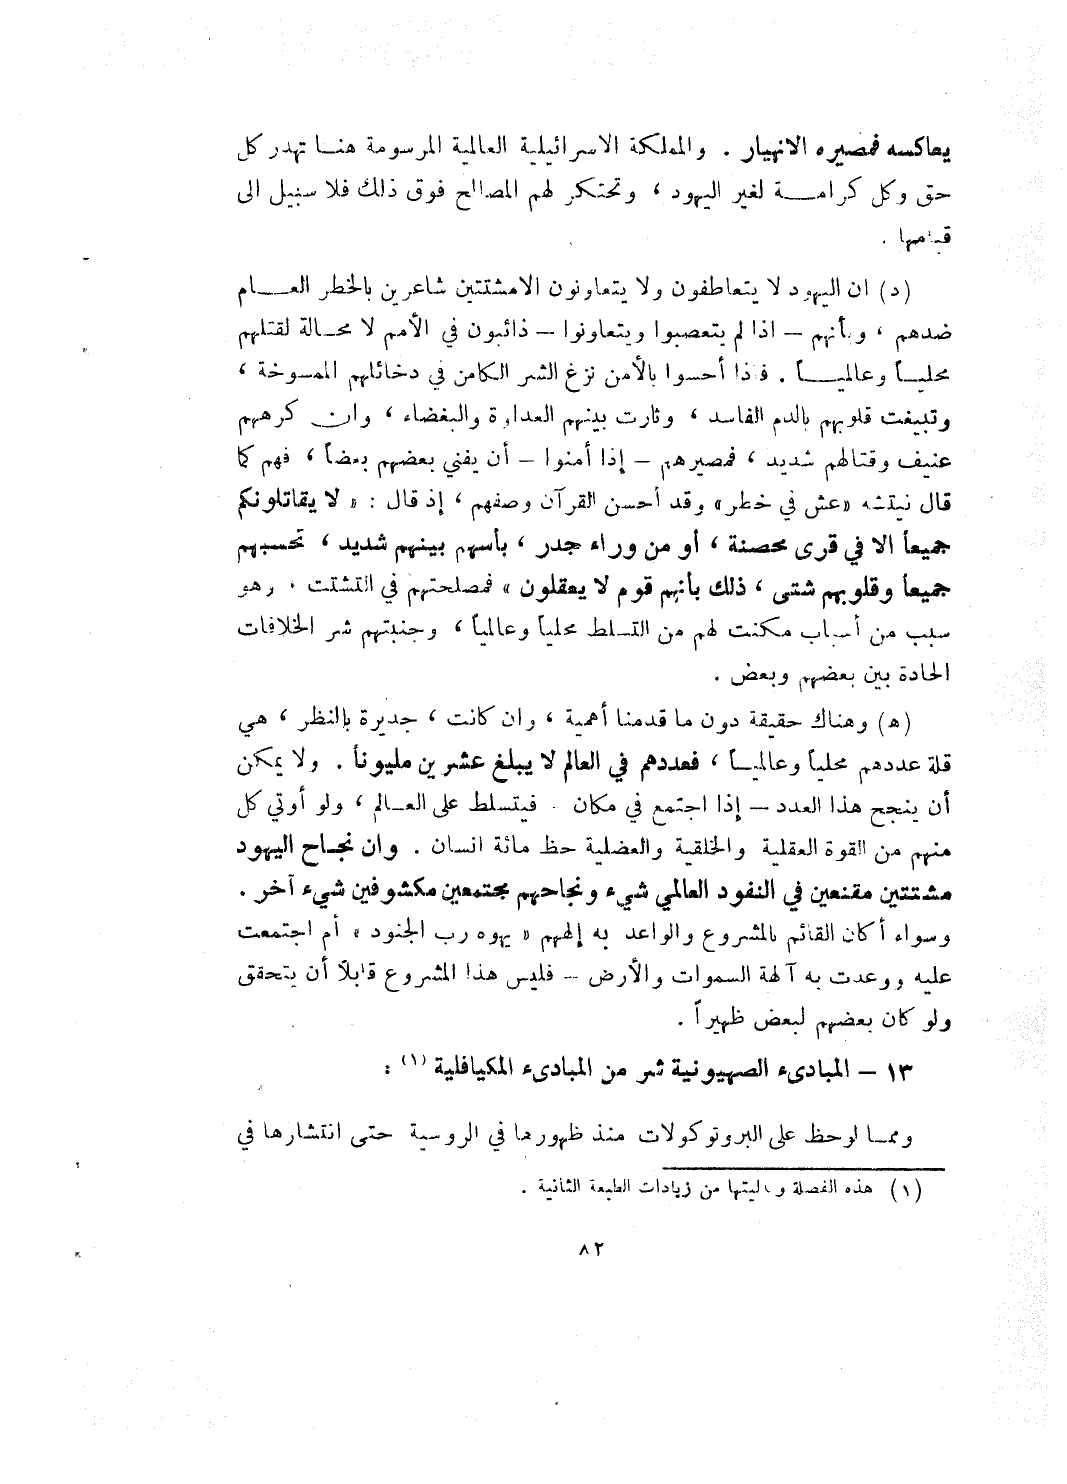 يعاكسه فمصيره الانهيار . والمملكة الاسرائيلية العالمية المرسومة هنــا تهدر كل
حق وكل كرامـــة لغير اليهود ، وتحتكر لهم المصالح فوق ذلك فلا سبيل الى
قيامها .
(د) ان اليهود لا يتعاطفون ولا يتعاونون الامشتتين شاعرين بالخطر العـــام
ضدهم ، وبأنهم – اذا لم يتعصبوا ويتعاونوا – ذائبون في الأمم لا محـالة لقتلهم
محليـاً وعالميـــاً . فاذا أحسوا بالأمن نزغ الشر الكامن في دخائلهم الممسوخة ،
وتبيغت قلوبهم بالدم الفاسد ، وثارت بينهم العداوة والبغضاء ، وان كرههم
عنيف وقتالهم شديد ، فمصيرهم – إذا أمنوا – أن يفني بعضهم بعضاً ، فهم كما
قال نيتشه «عش في خطر» وقد أحسن القرآن وصفهم ، إذ قال : « لا يقاتلونكم
جميعاً الا في قرى محصنة ، أو من وراء جدر ، بأسهم بينهم شديد ، تحسبهم
جميعاً وقلوبهم شتى ، ذلك بأنهم قوم لا يعقلون » فمصلحتهم في التشتت ، وهو
سبب من أسباب مكنت لهم من التسلط محلياً وعالمياً ، وجنبتهم شر الخلافات
الحادة بين بعضهم وبعض .
(ه) وهناك حقيقة دون ما قدمنا أهمية ، وان كانت ، جديرة بالنظر ، هي
قلة عددهم محلياً وعالميـاً ، فعددهم في العالم لا يبلغ عشرين مليوناً . ولا يمكن
أن ينجح هذا العدد – إذا اجتمع في مكان . فيتسلط على العـالم ، ولو أوتي كل
منهم من القوة العقلية والخلقية والعضلية حظ مائة انسان . وان نجـاح اليهود
مشتتين مقنعين في النفود العالمي شيء ونجاحهم مجتمعين مكشوفين شيء آخر .
وسواء أكان القائم بالمشروع والواعد به إلههم « يهوه رب الجنود » أم اجتمعت
عليه ووعدت به آلهة السموات والأرض – فليس هذا المشروع قابلاً أن يتحقق
ولو كان بعضهم لبعض ظهيراً .
١٣ – المبادىء الصهيونية شر من المبادىء المكيافلية (١) :
وممـا لوحظ على البروتوكولات منذ ظهورها في الروسية حتى انتشارها في
(١) هذه الفصلة وتاليتها من زيادات الطبعة الثانية .
٨٢